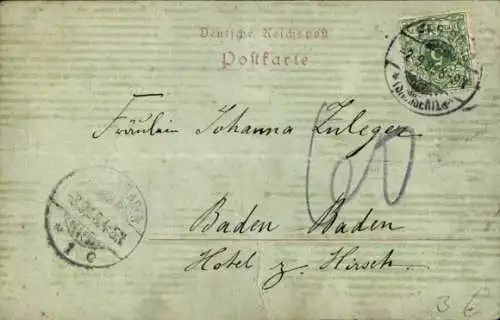 Deutsche Reichspost
Postkarte
5
Fräulein Johanna Zuleger
60
Baden Baden
Hotel z. Hirsch.
1 c
3 €